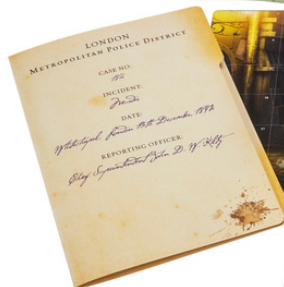 LONDON
METROPOLITAN POLICE DISTRICT
CASE NO:
INCIDENT:
DATE:
Whitechapel, London December
REPORTING OFFICER:
Chief Superintendent John D. W.